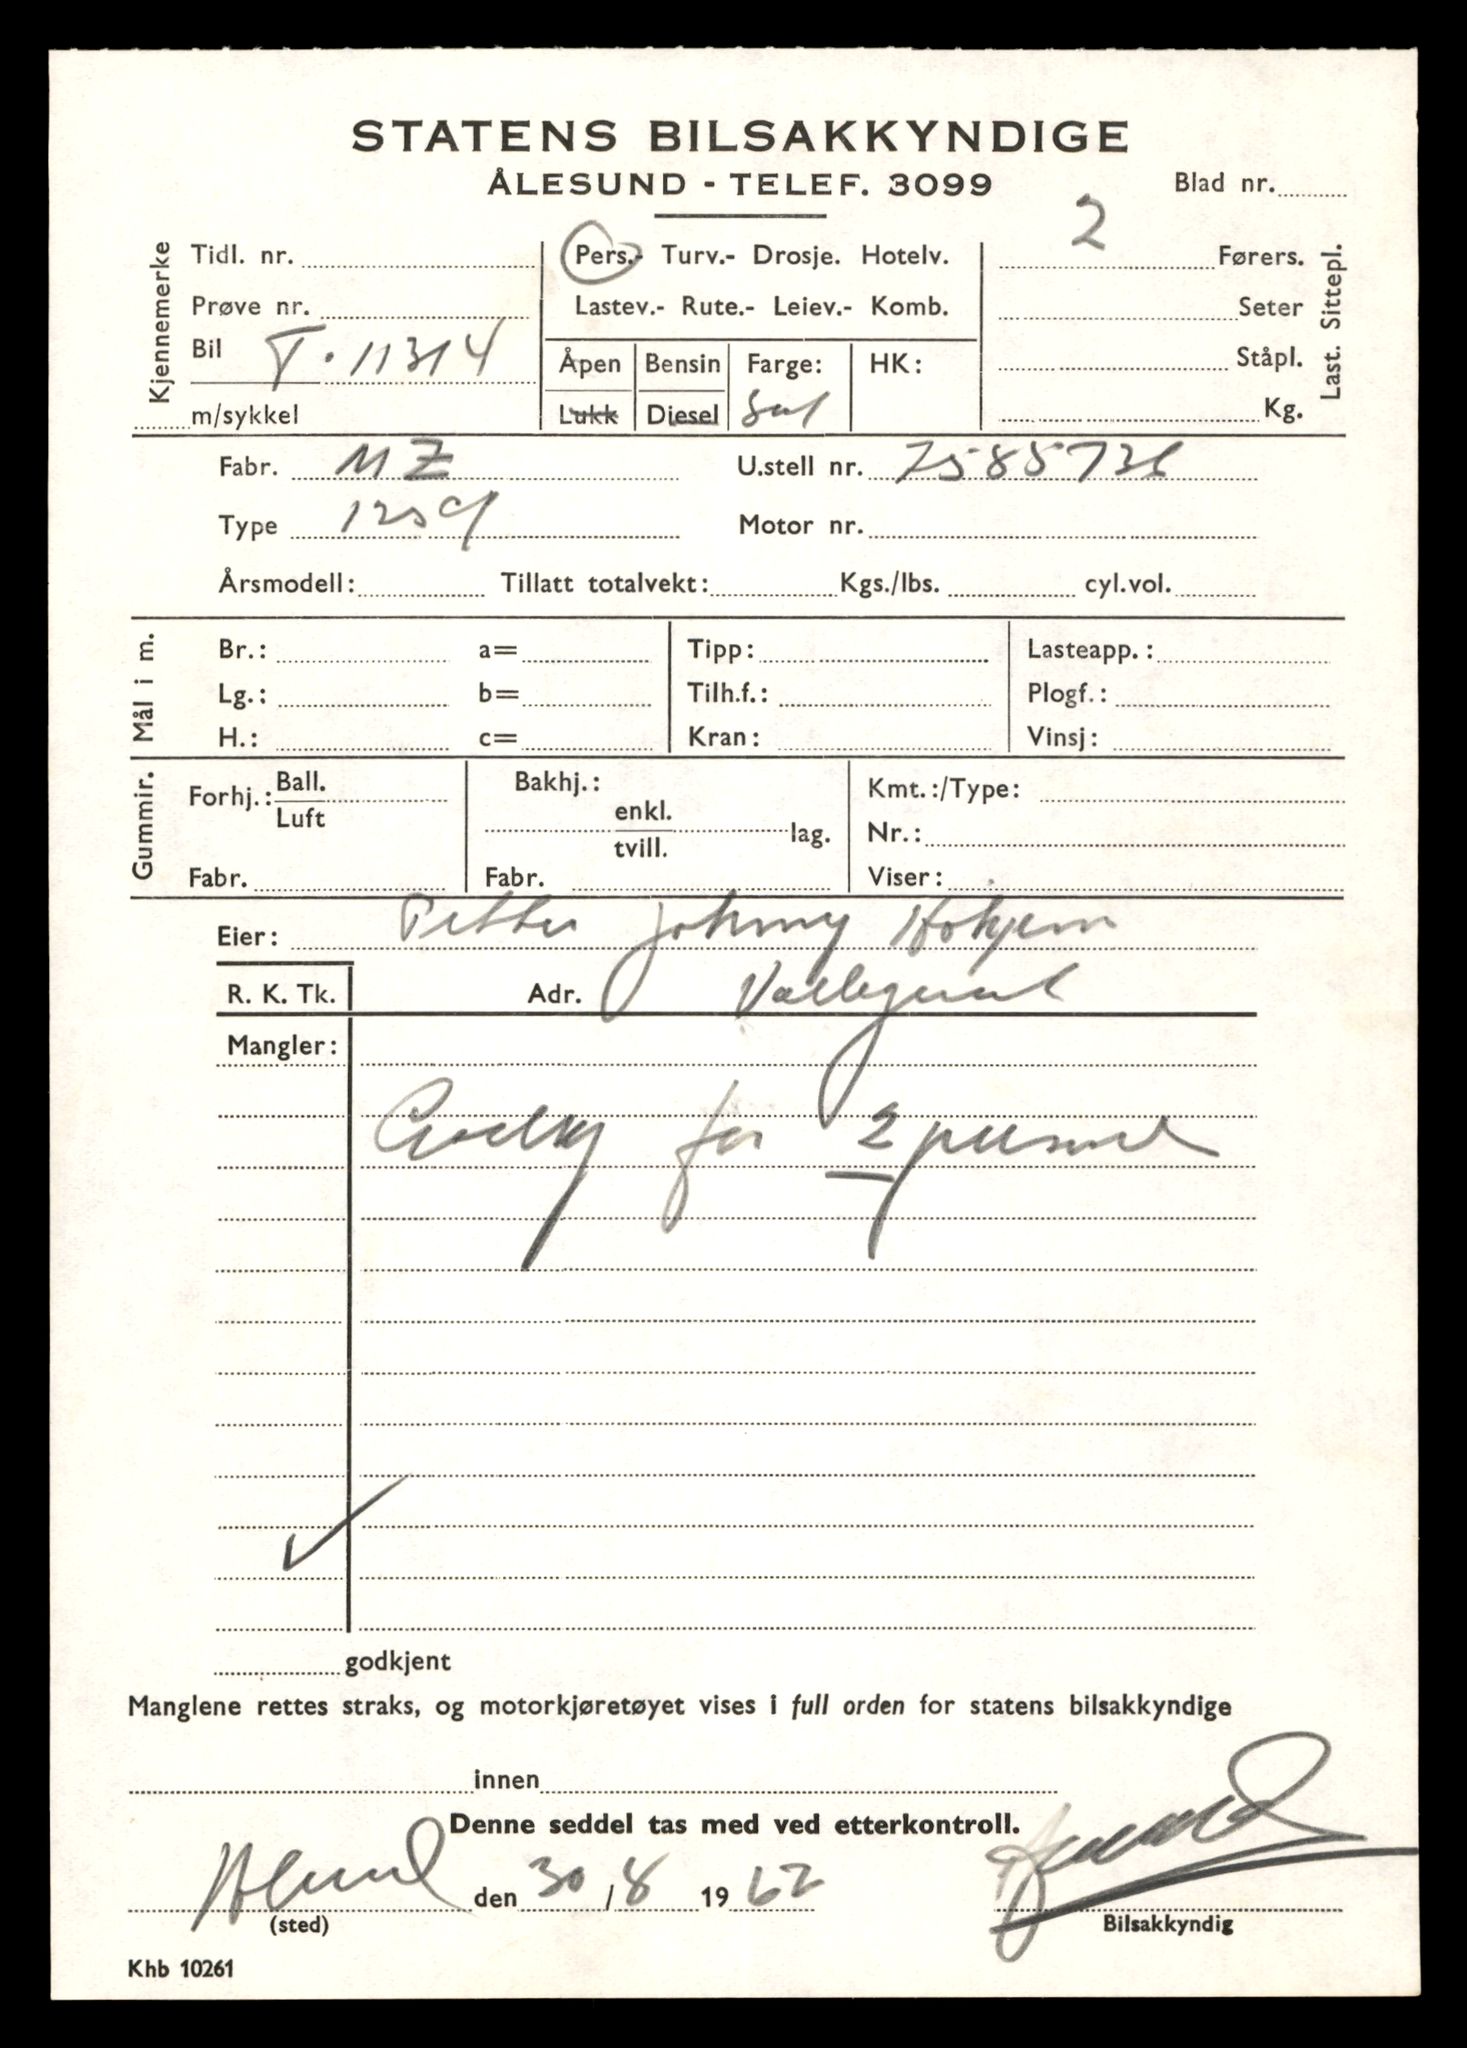 STATENS BILSAKKYNDIGE
ÅLESUND - TELEF. 3099
Blad nr.
Kjennemerke
Tidl. nr.
Prøve nr.
Bil T. 11314
m/sykkel
Pers.- Turv.- Drosje. Hotelv.
Lastev.- Rute.- Leiev.- Komb.
Åpen Bensin Farge: HK:
Lukk Diesel
2 Førers.
Seter
Ståpl.
Kg.
Last. Sittepl.
Fabr. MZ U.stell nr. 7585736
Type 125 Motor nr.
Årsmodell: Tillatt totalvekt: Kgs./lbs. cyl.vol.
Mål i m.
Br.: a= Tipp: Lasteapp.:
Lg.: b= Tilh.f.: Plogf.:
H.: c= Kran: Vinsj:
Gummir.
Forhj.: Ball.
Luft
Fabr.
Bakhj.:
enkl.
tvill. lag.
Fabr.
Kmt.:/Type:
Nr.:
Viser:
Eier: Petter Johnny
R. K. Tk. Adr.
Mangler:
for 2
godkjent
Manglene rettes straks, og motorkjøretøyet vises i full orden for statens bilsakkyndige
innen
Denne seddel tas med ved etterkontroll.
den 30/8 1962
(sted) Bilsakkyndig
Khb 10261